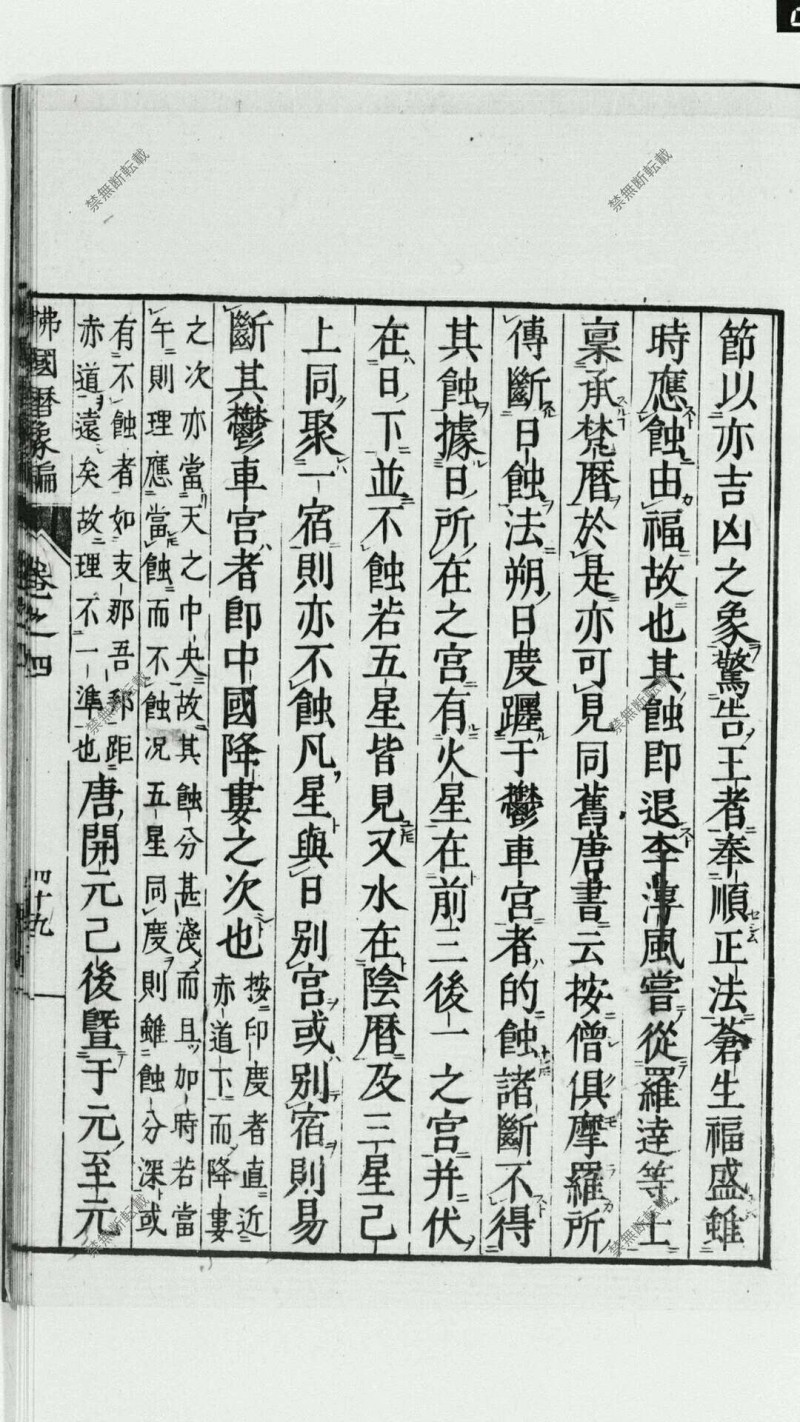 節以亦吉凶之象驚告王者奉順正法蒼生福盛雖
時應蝕由福故也其蝕即退李淳風嘗從羅逹等士
稟承梵暦於是亦可見同舊唐書云按僧俱摩羅所
傳斷日蝕法朔日度躔于鬱車宮者的蝕諸斷不得
其蝕據日所在之宮有火星在前三後一之宮并伏
在日下並不蝕若五星皆見又水在陰暦及三星已
上同聚一宿則亦不蝕凡星與日別宮或別宿則易
斷其鬱車宮者卽中國降婁之次也
按印度者直近
赤道下而降婁
之次亦當天之中央故其蝕分甚淺而且如時若當
午則理應當蝕而不蝕况五星同度則雖蝕分深或
有不蝕者如支那吾邦距
赤道遠矣故理不一準也
唐開元己後曁于元至元
佛國暦象編
卷之四
四十九
禁無断転載
禁無断転載
禁無断転載
禁無断転載
禁無断転載
禁無断転載